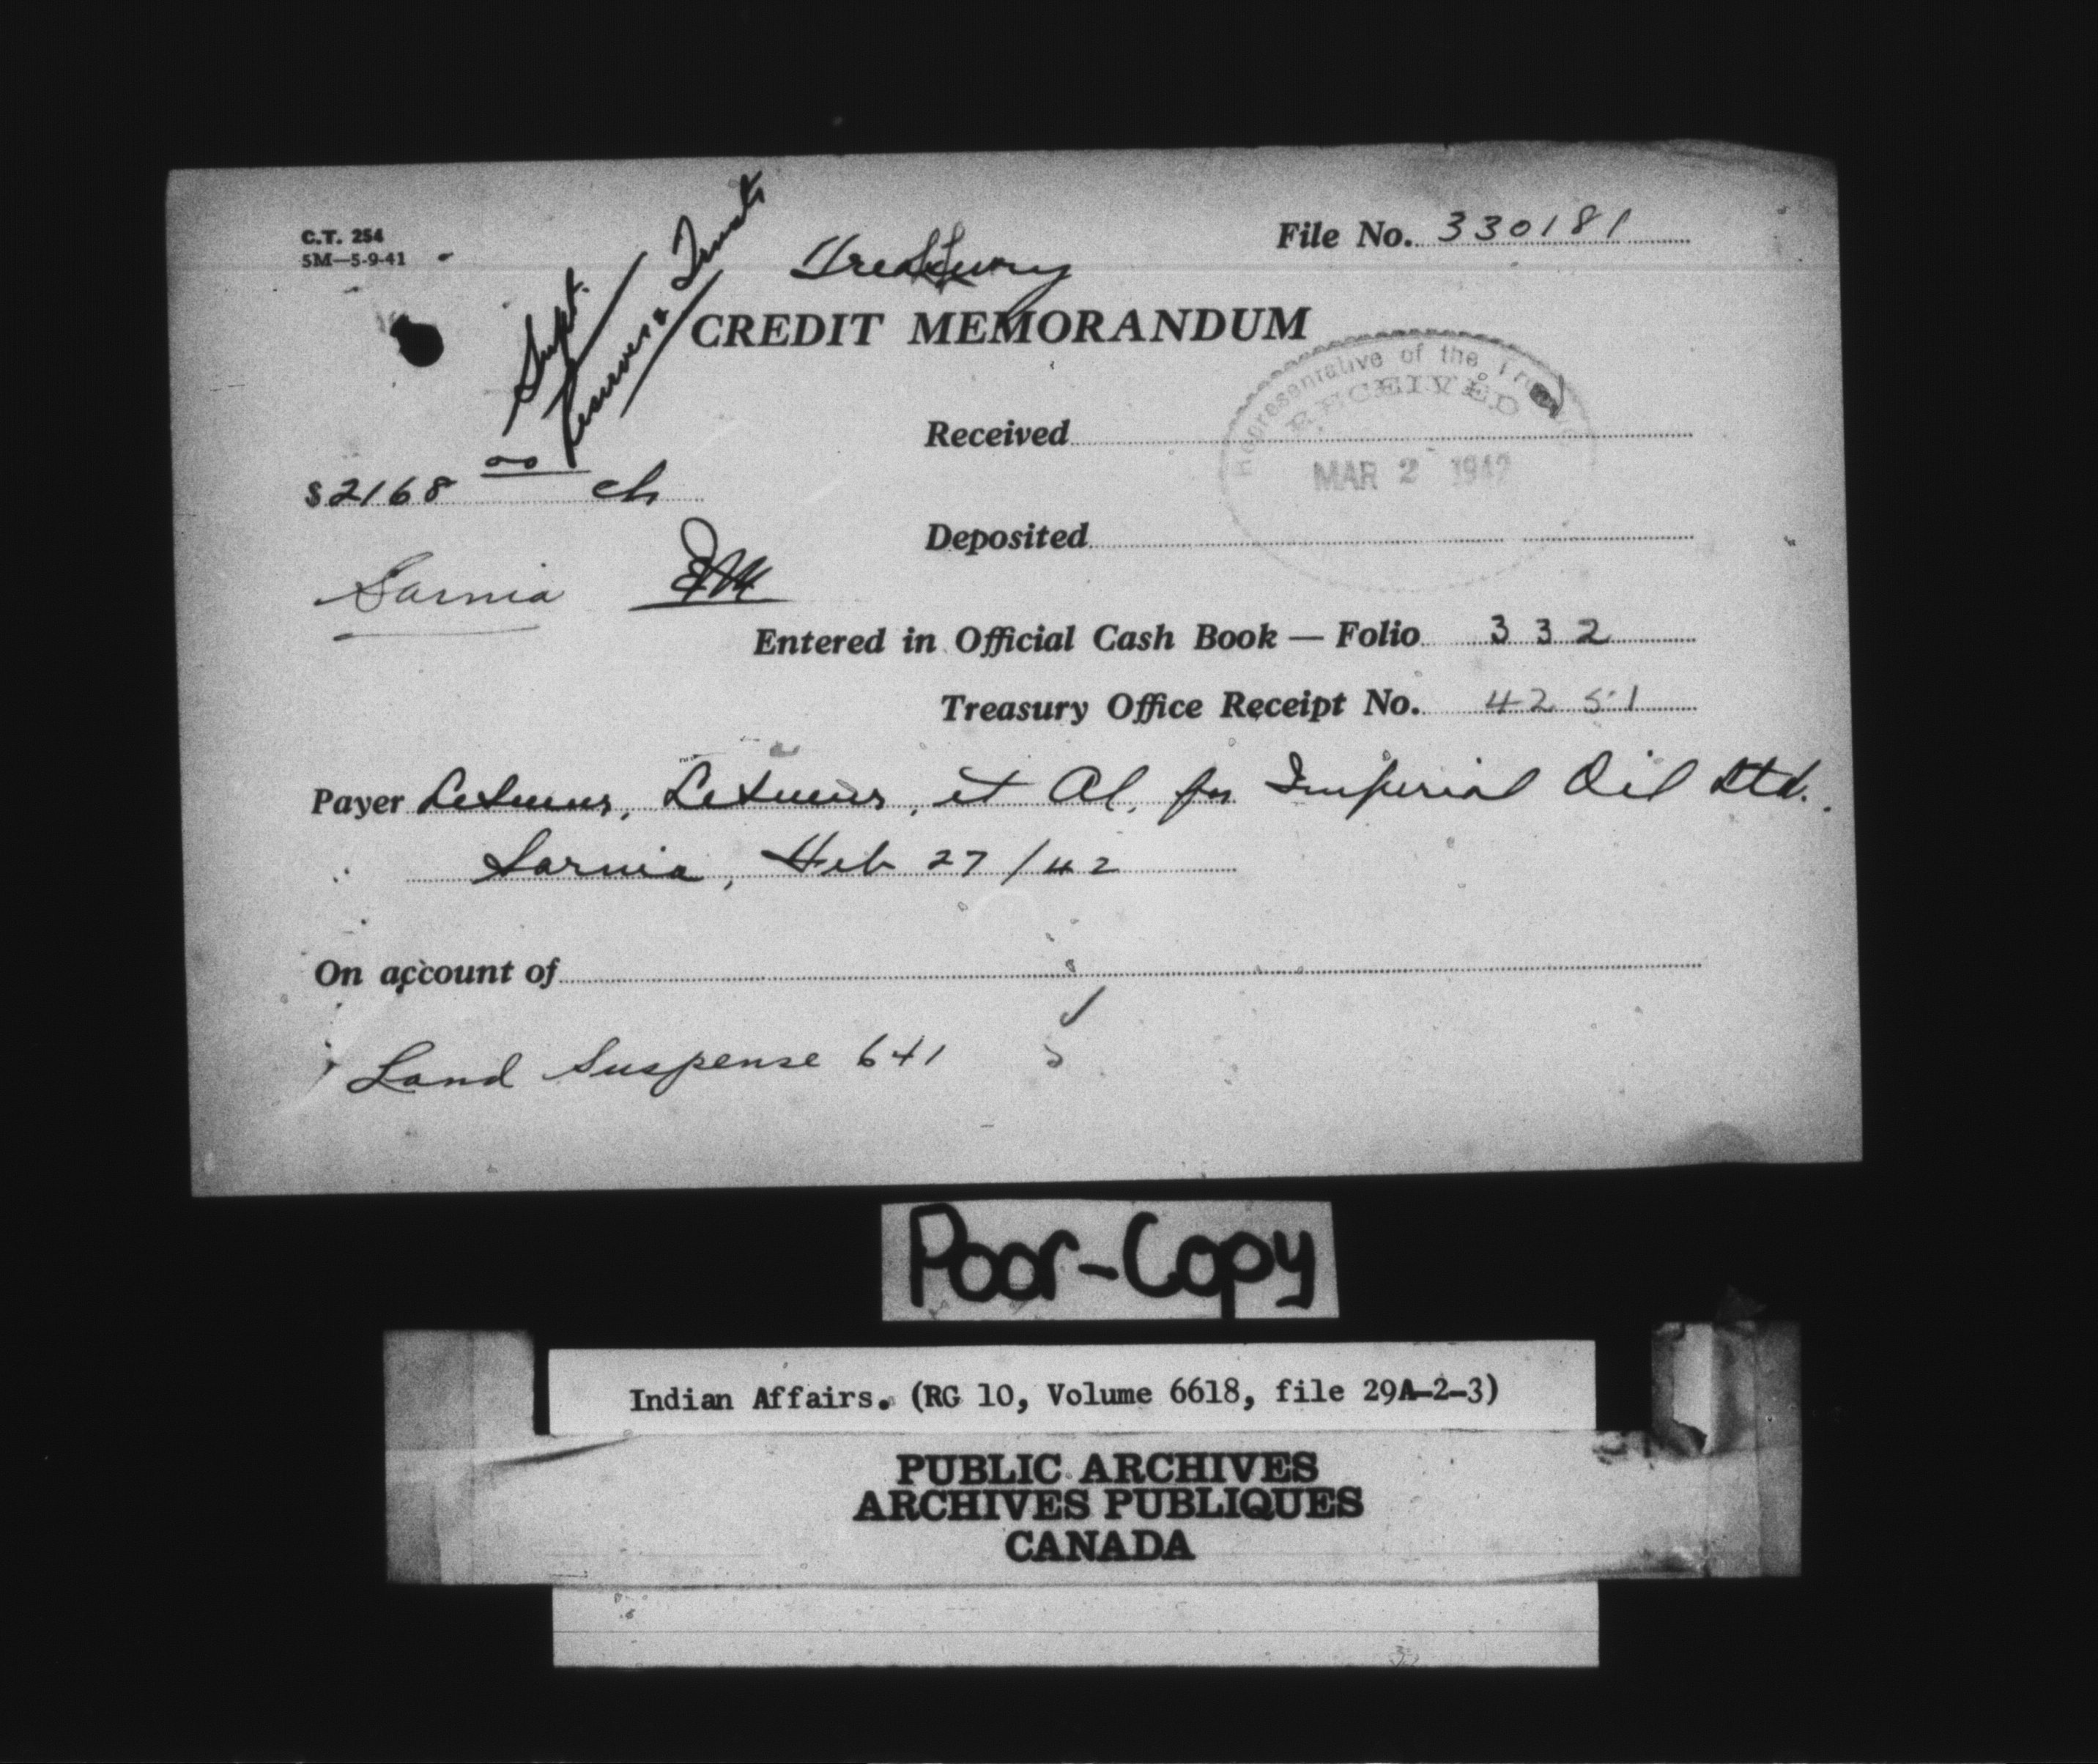 C.T. 254
5M—5-9-41
File No. 330181
Treasury
Supt.
Reserves & Trusts
CREDIT MEMORANDUM
Representative of the Treasury
RECEIVED
MAR 2 1942
Received
$2168 00 ch
Deposited
Sarnia
Entered in Official Cash Book — Folio 332
Treasury Office Receipt No. 4251
Payer LeSueur, LeSueur, et Al, for Imperial Oil Ltd.
Sarnia, Feb 27/42
On account of
Land Suspense 641
Poor-Copy
Indian Affairs. (RG 10, Volume 6618, file 29A-2-3)
PUBLIC ARCHIVES
ARCHIVES PUBLIQUES
CANADA